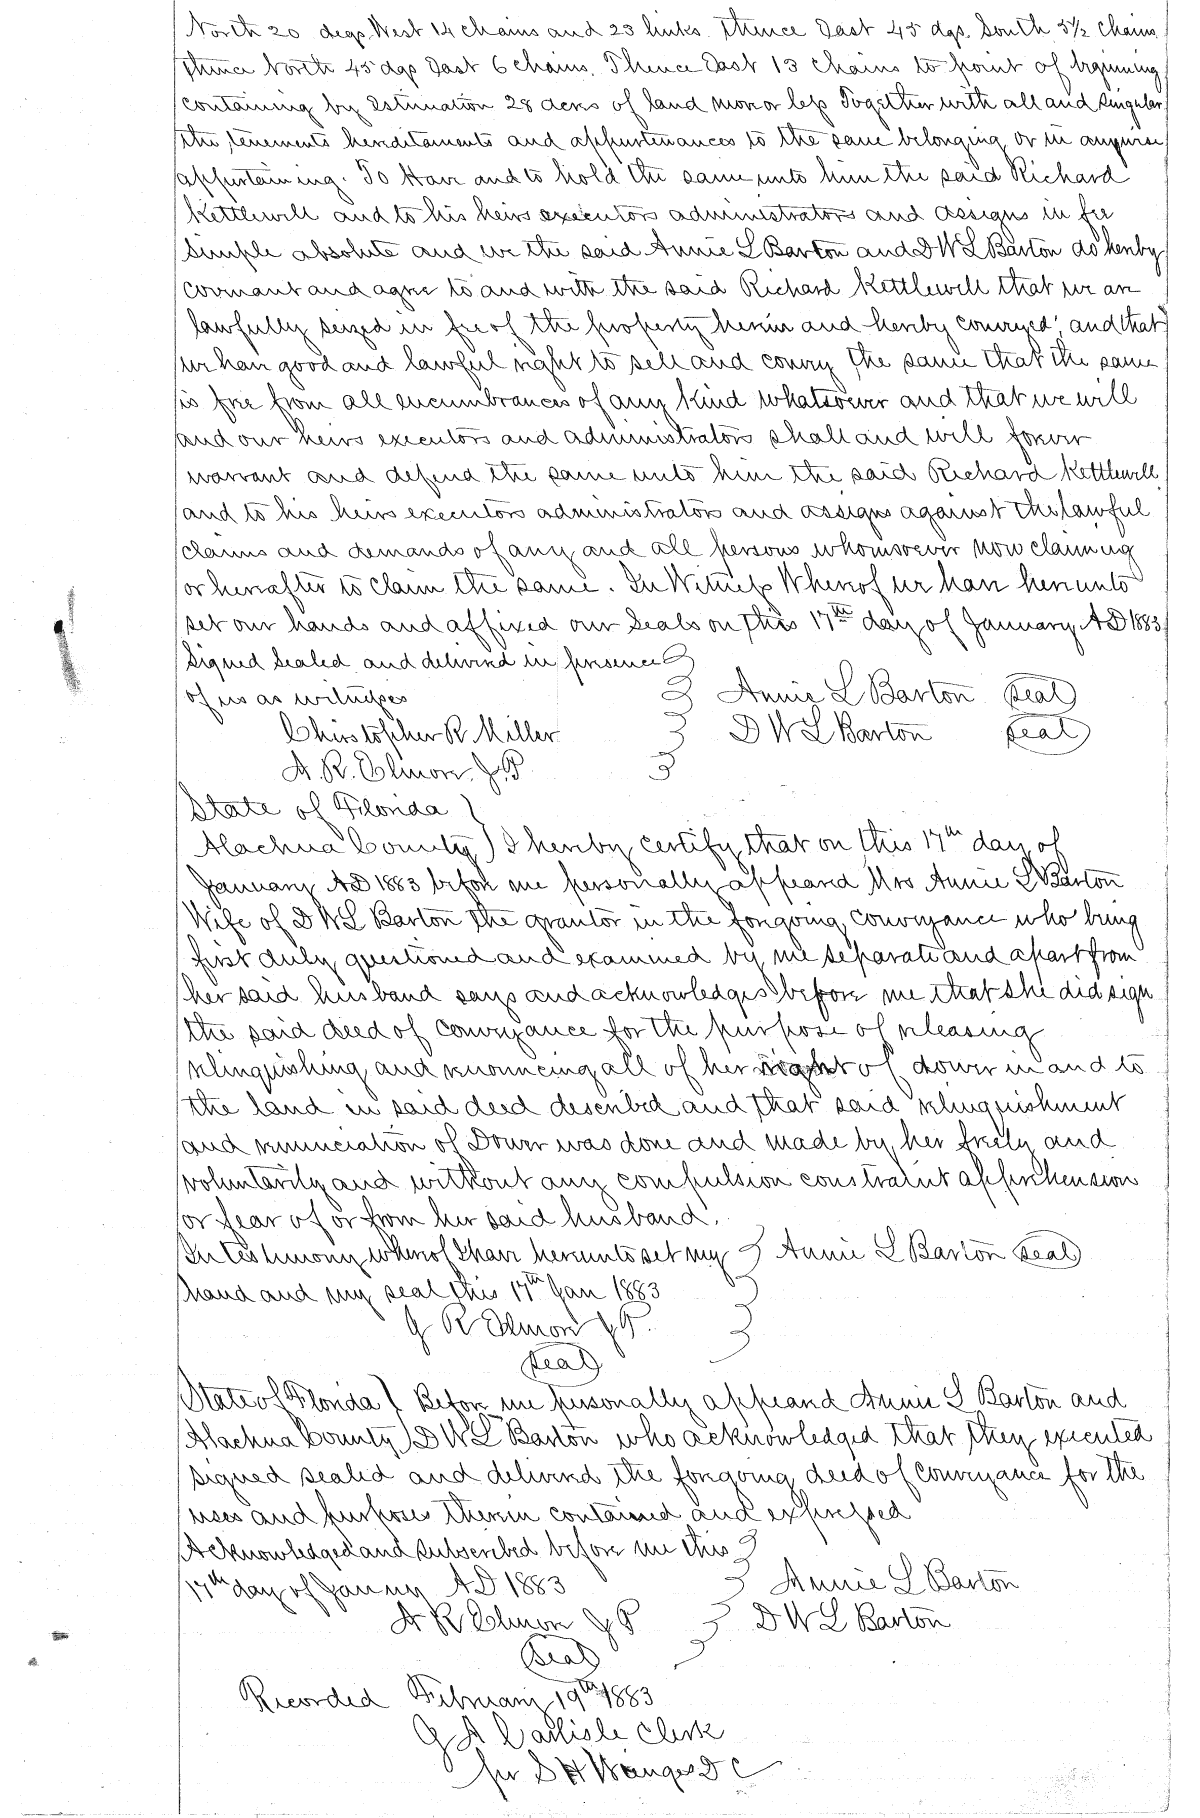 North 20 degs. West 14 chains and 23 links. Thence East 45 dgs. South 5½ chains
thence North 45 dgs East 6 chains. Thence East 13 chains to point of beginning
containing by Estimation 28 acres of land more or less Together with all and singular
the tenements hereditaments and appurtenances to the same belonging or in anywise
appertaining. To Have and to hold the same unto him the said Richard
Kettlewell and to his heirs executors administrators and assigns in fee
simple absolute and we the said Annie L Barton and D W L Barton do hereby
covenant and agree to and with the said Richard Kettlewell that we are
lawfully seized in fee of the property herein and hereby conveyed; and that
we have good and lawful right to sell and convey the same that the same
is free from all encumbrances of any kind whatsoever and that we will
and our heirs executors and administrators shall and will forever
warrant and defend the same unto him the said Richard Kettlewell
and to his heirs executors administrators and assigns against the lawful
claims and demands of any and all persons whomsoever now claiming
or hereafter to claim the same. In Witness Whereof we have hereunto
set our hands and affixed our seals on this 17th day of January AD 1883
Signed sealed and delivered in presence
of us as witnesses Annie L Barton Seal
Christopher R Miller D W L Barton Seal
A. R. Elmore J.P.
State of Florida }
Alachua County } I hereby certify that on this 17th day of
January AD 1883 before me personally appeared Mrs Annie L Barton
Wife of D W L Barton the grantor in the foregoing conveyance who being
first duly questioned and examined by me separate and apart from
her said husband says and acknowledges before me that she did sign
the said deed of conveyance for the purpose of releasing
relinquishing and renouncing all of her right of dower in and to
the land in said deed described and that said relinquishment
and renunciation of Dower was done and made by her freely and
voluntarily and without any compulsion constraint apprehension
or fear of or from her said husband.
In testimony whereof I have hereunto set my Annie L Barton Seal
hand and my seal this 17th Jan 1883
R Elmore J P.
Seal
State of Florida } Before me personally appeared Annie L Barton and
Alachua County } D W L Barton who acknowledged that they executed
signed sealed and delivered the foregoing deed of conveyance for the
uses and purposes therein contained and expressed
Acknowledged and subscribed before me this
17th day of January AD 1883 Annie L Barton
A R Elmore J P D W L Barton
Seal
Recorded February 19th 1883
J A Carlisle Clerk
per S H Wienges D C